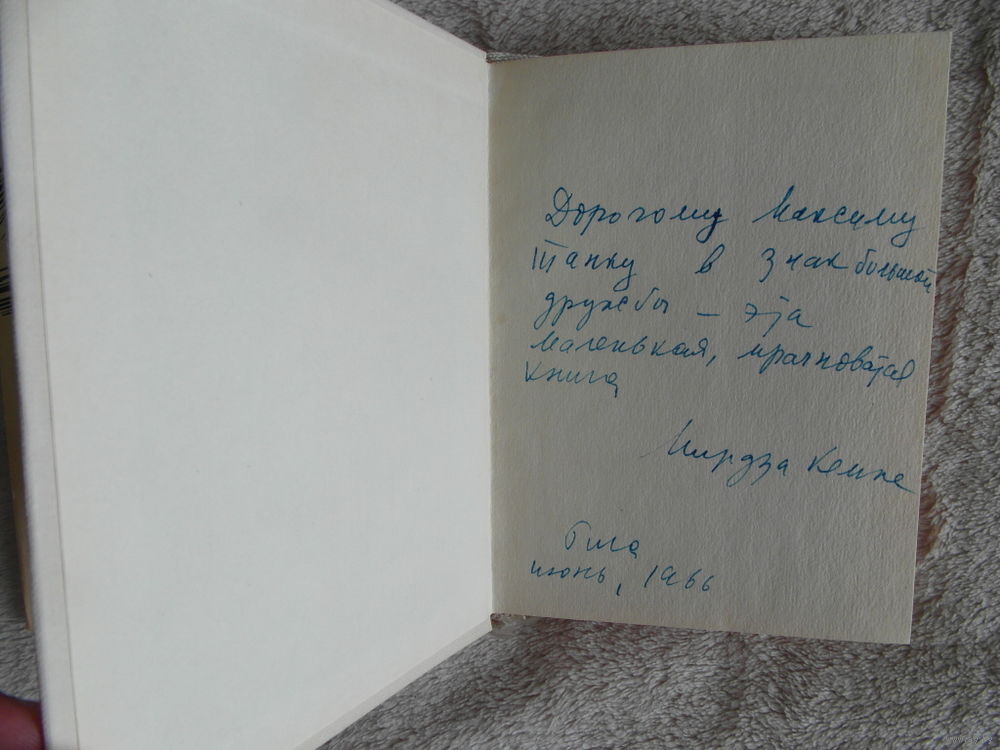 Дорогому Максиму
Танку в знак большой
дружбы – эта
маленькая, мрачноватая
книга
Мирдза Кемпе
Рига
июнь, 1966